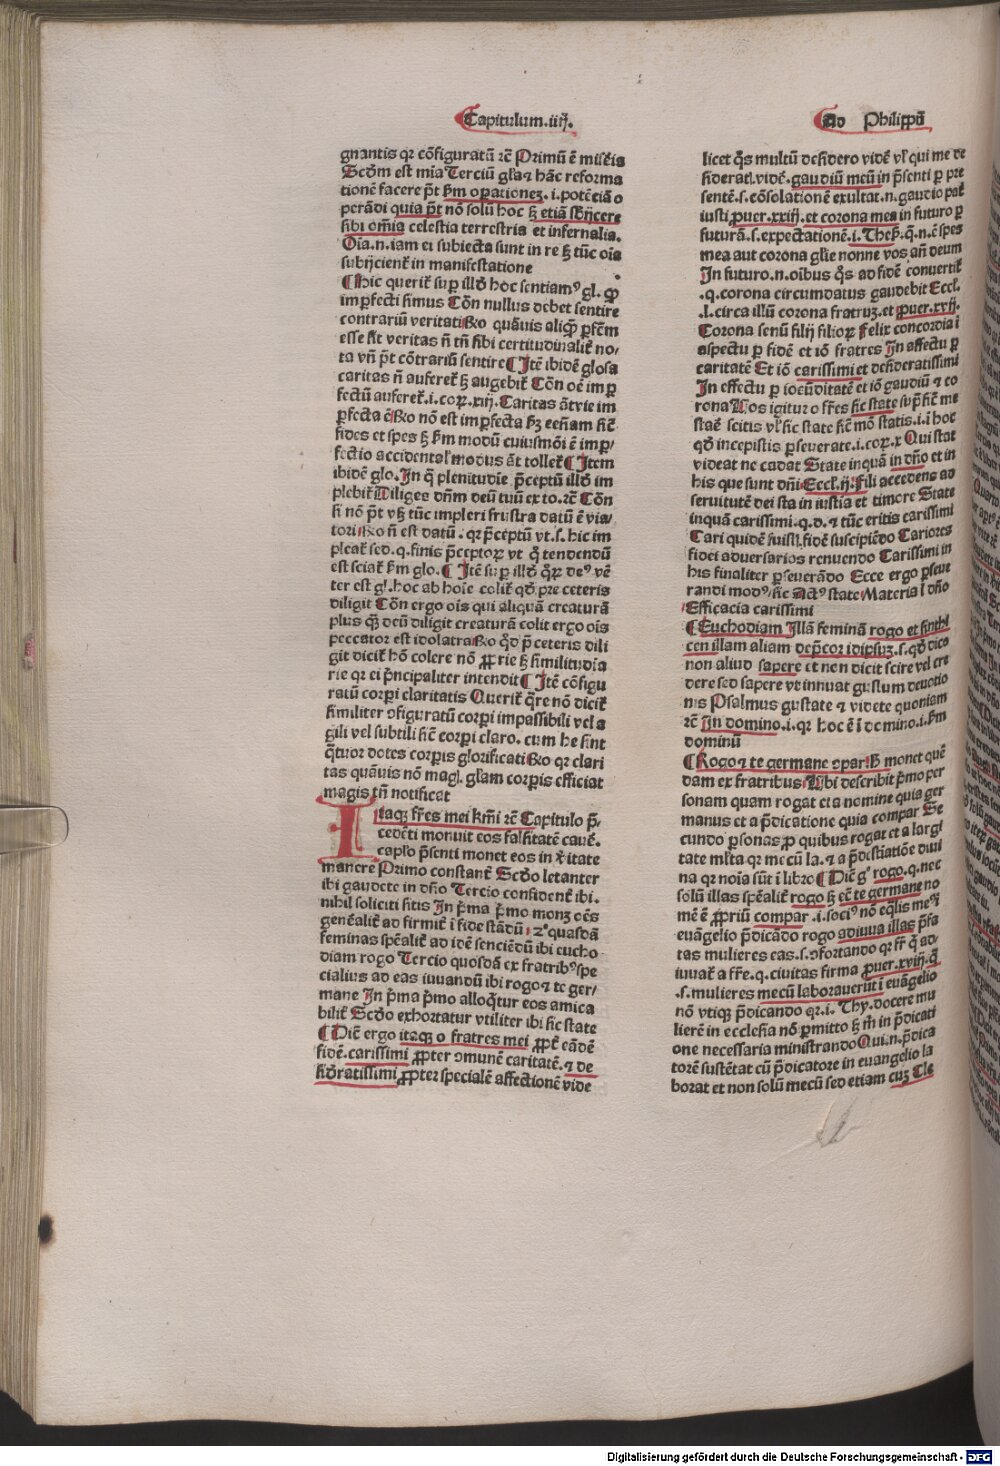 Capitulum.iiij.
Ad Philippē̄
gnantis qr cōfiguratū rē Primū ē miserīs
Scd̄m est mīa Terciū gl̄a ⁊ hāc reforma
tionē facere pt̄ ẜm oꝑationeꝫ .i. potētiā o
perādi quia pt̄ nō solū hoc ſꝫ etiā sbijcere
sibi om̄ia celestia terrestria et infernalia.
Oīa .n. iam ei subiecta sunt in re ſꝫ tūc oīa
subijcient̄ in manifestatione
¶ Hic querit̄ suꝑ illd̄ hoc sentiamꝰ gl. ꝙ
imꝑfecti simus Cōn nullus debet sentire
contrariū veritati Rō quāuis aliqͥ ꝑfēm
esse sit veritas n̄ tn̄ sibi certitudinalit̄ no⸗
ta vn̄ pt̄ cōtrariū sentire ¶ Itē ibidē glosa
caritas n̄ aufert̄ ſꝫ augebit̄ Cōn oē imꝑ
fectū aufert̄ .i. coꝝ. xiij. Caritas āt vie im
ꝑfecta ē Rō nō est imꝑfecta ẜꝫ eēn̄am sic̄
fides et spes ſꝫ ẜm modū cuiusmōi ē imꝑ⸗
fectio accidental̄ modus āt tollet̄ ¶ Item
ibidē glo. In q̄ plenitudīe p̄ceptū illd̄ im
plebit̄ Diliges dn̄m deū tuū ex to. rē Cōn
si nō pt̄ vſꝫ tūc impleri frustra datū ē via⸗
tori Rō n̄ est datū .qr p̄ceptū vt .s. hic im
pleat̄ sed .q. finis p̄ceptoꝝ vt q̄ tendendū
est sciat̄ ẜm glo. ¶ Itē suꝑ illd̄ qͦꝝ deꝰ vē
ter est gl. hoc ab hoīe colit̄ qd̄ pre ceteris
diligit Cōn ergo oīs qui aliquā creaturā
plus qꝫ deū diligit creaturā colit ergo oīs
peccator est idolatra Rō qd̄ p̄ ceteris dili
git dicit̄ hō colere nō ꝓprie ſꝫ similitudīa
rie qr ei pͥncipaliter intendit ¶ Itē cōfigu
ratū corpi claritatis Querit̄ qͣre nō dicit̄
similiter ɔfiguratū corpi impassibili vel a
gili vel subtili sic̄ corpi claro. cum he sint
qͣtuor dotes corpis glorificati Rō qr clari
tas quāuis nō magl. gl̄am corpis efficiat
magis tn̄ notificat
Itaqꝫ fr̄es mei kr̄mi rē Capitulo p̄⸗
cedēti monuit eos falsitatē cauē.
capl̄o p̄senti monet eos in v̄itate
manere Primo constant̄ Scd̄o letanter
ibi gaudete in dn̄o Tercio confident̄ ibi.
nihil soliciti sitis In pͥma pͥmo monꝫ oēs
gen̄alit̄ ad firmit̄ ī fide stādū 2ͦ quasdā
feminas sp̄ealit̄ ad idē senciēdū ibi eucho⸗
diam rogo Tercio quosdā ex fratribꝰ spe
cialius ad eas iuuandū ibi rogo ⁊ te ger⸗
mane In pͥma pͥmo alloqͥtur eos amica
bilit̄ Scd̄o exhortatur vtiliter ibi sic state
¶ Diē ergo itaqꝫ o fratres mei ꝓpt̄ eādē
fidē. carissimi ꝓpter ɔmunē caritatē. ⁊ de
sid̄eratissimi ꝓpter specialē affectionē vide
licet qͦs multū desidero vidē vl̄ qui me de
siderāt vidē. gaudiū meū in p̄senti ꝑ pre
sentē .s. cōsolationē exultat .n. gaudio pat̄
iusti puer. xxiij. et corona mea in futuro ꝑ
futurā .s. expectationē .i. Thes. q̄ .n. ē spes
mea aut corona gl̄ie nonne vos an̄ deum
In futuro .n. oībus qͦs ad fidē conuertit̄
.q. corona circumdatus gaudebit Eccl.
.l. circa illū corona fratruꝫ. et puer. xvij.
Corona senū filij filioꝝ Felix concordia ī
aspectu ꝑ fidē et iō fratres In affectu ꝑ
caritatē Et iō carissimi et desideratissimi
In effectu ꝑ iocūditatē et iō gaudiū ⁊ co
rona Uos igitur o fr̄es sic state suꝑ sic̄ me
stare scitis vl̄ sic state sic̄ mō statis .i. ī hoc
qd̄ incepistis ꝑseuerate .i. coꝝ. x Qui stat
videat ne cadat State inquā in dn̄o et in
his que sunt dn̄i Eccl. ij. Fili accedens ad
seruitutē dei sta in iustia et timore State
inquā carissimi .q. d. ⁊ tūc eritis carissimi
Cari quidē fuisti fidē suscipiēdo Cariores
fidei aduersarios renuendo Carissimi in
his finaliter ꝑseuerādo Ecce ergo ꝑseue
randi modꝰ sic Actꝰ state Materia ī dn̄o
Efficacia carissimi
¶ Euchodiam Illā feminā rogo et sinthi
cen illam aliam dep̄cor idipsuꝫ .s. qd̄ dico
non aliud sapere et non dicit scire vel cre
dere sed sapere vt innuat gustum deuotio
nis Psalmus gustate ⁊ videte quoniam
rē In domino .i. qr hoc ē ī domino .i. ẜm
dominū
¶ Rogo ⁊ te germane cōpar H monet quē
dam ex fratribus Ubi describit pͥmo per
sonam quam rogat et a nomine quia ger
manus et a p̄dicatione quia compar Se
cundo ꝑsonas ꝓ quibus rogat et a largi
tate ml̄ta qr mecū la. ⁊ a p̄destiatiōe diui
na qr noīa sūt ī libro ¶ Diē gͦ rogo .q. nec
solū illas sp̄ealit̄ rogo ſꝫ eē te germane no
mē ē ꝓpriū compar .i. sociꝰ nō eqͣlis meꝰ ī
euāgelio p̄dicādo rogo adiuua illas p̄fa
tas mulieres eas .s. ɔfortando qr fr̄ qͥ ad
iuuat̄ a fr̄e .q. ciuitas firma puer. xviij. q̄
.s. mulieres mecū laborauerūt ī euāgelio
nō vtiqꝫ p̄dicando qr .i. Thy. docere mu
lierē in ecclesia nō ꝑmitto ſꝫ m̄ in p̄dicati
one necessaria ministrando Qui .n. p̄dica
torē sustētat cū p̄dicatore in euangelio la
borat et non solū mecū sed etiam cuꝫ Cle
Digitalisierung gefördert durch die Deutsche Forschungsgemeinschaft - DFG